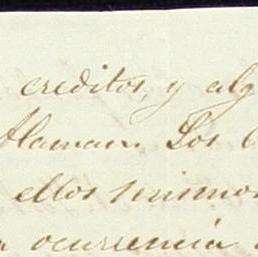 creditos, y alg
llaman. Los
ellos mismos
ocurrencia